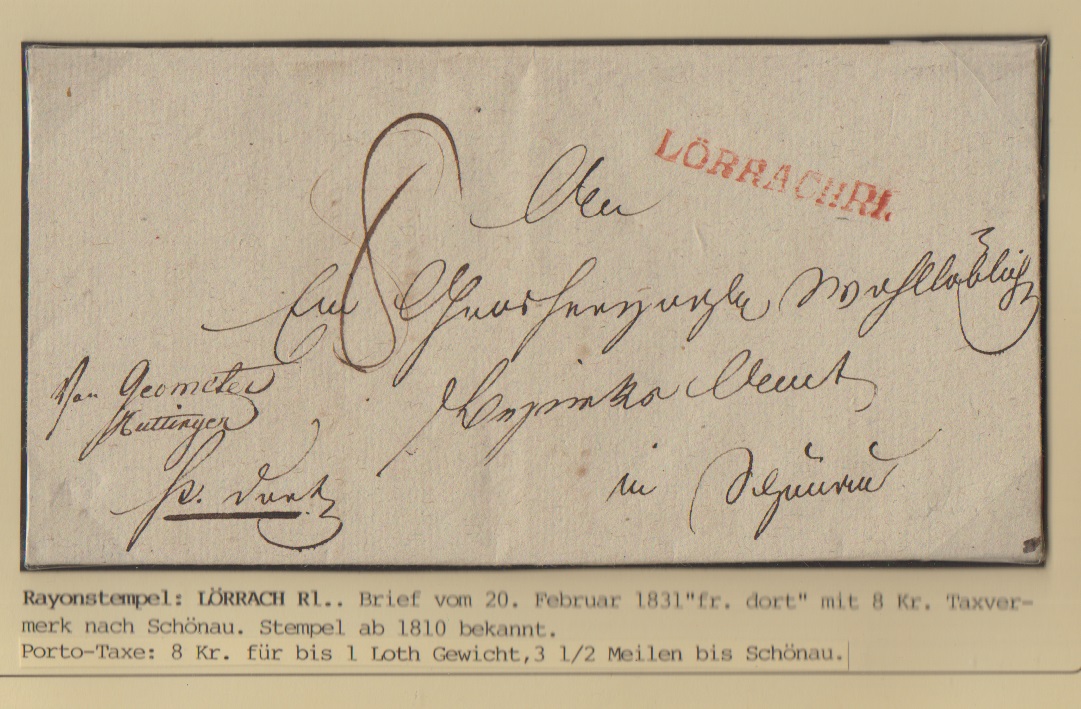 LÖRRACHR1.
8
An
Ein Grosherzogln Wohllöblich
Von Geometer
Bezirks Amt
fr. dort
in Schönau
Rayonstempel: LÖRRACH R1.. Brief vom 20. Februar 1831"fr. dort" mit 8 Kr. Taxver-
merk nach Schönau. Stempel ab 1810 bekannt.
Porto-Taxe: 8 Kr. für bis 1 Loth Gewicht,3 1/2 Meilen bis Schönau.